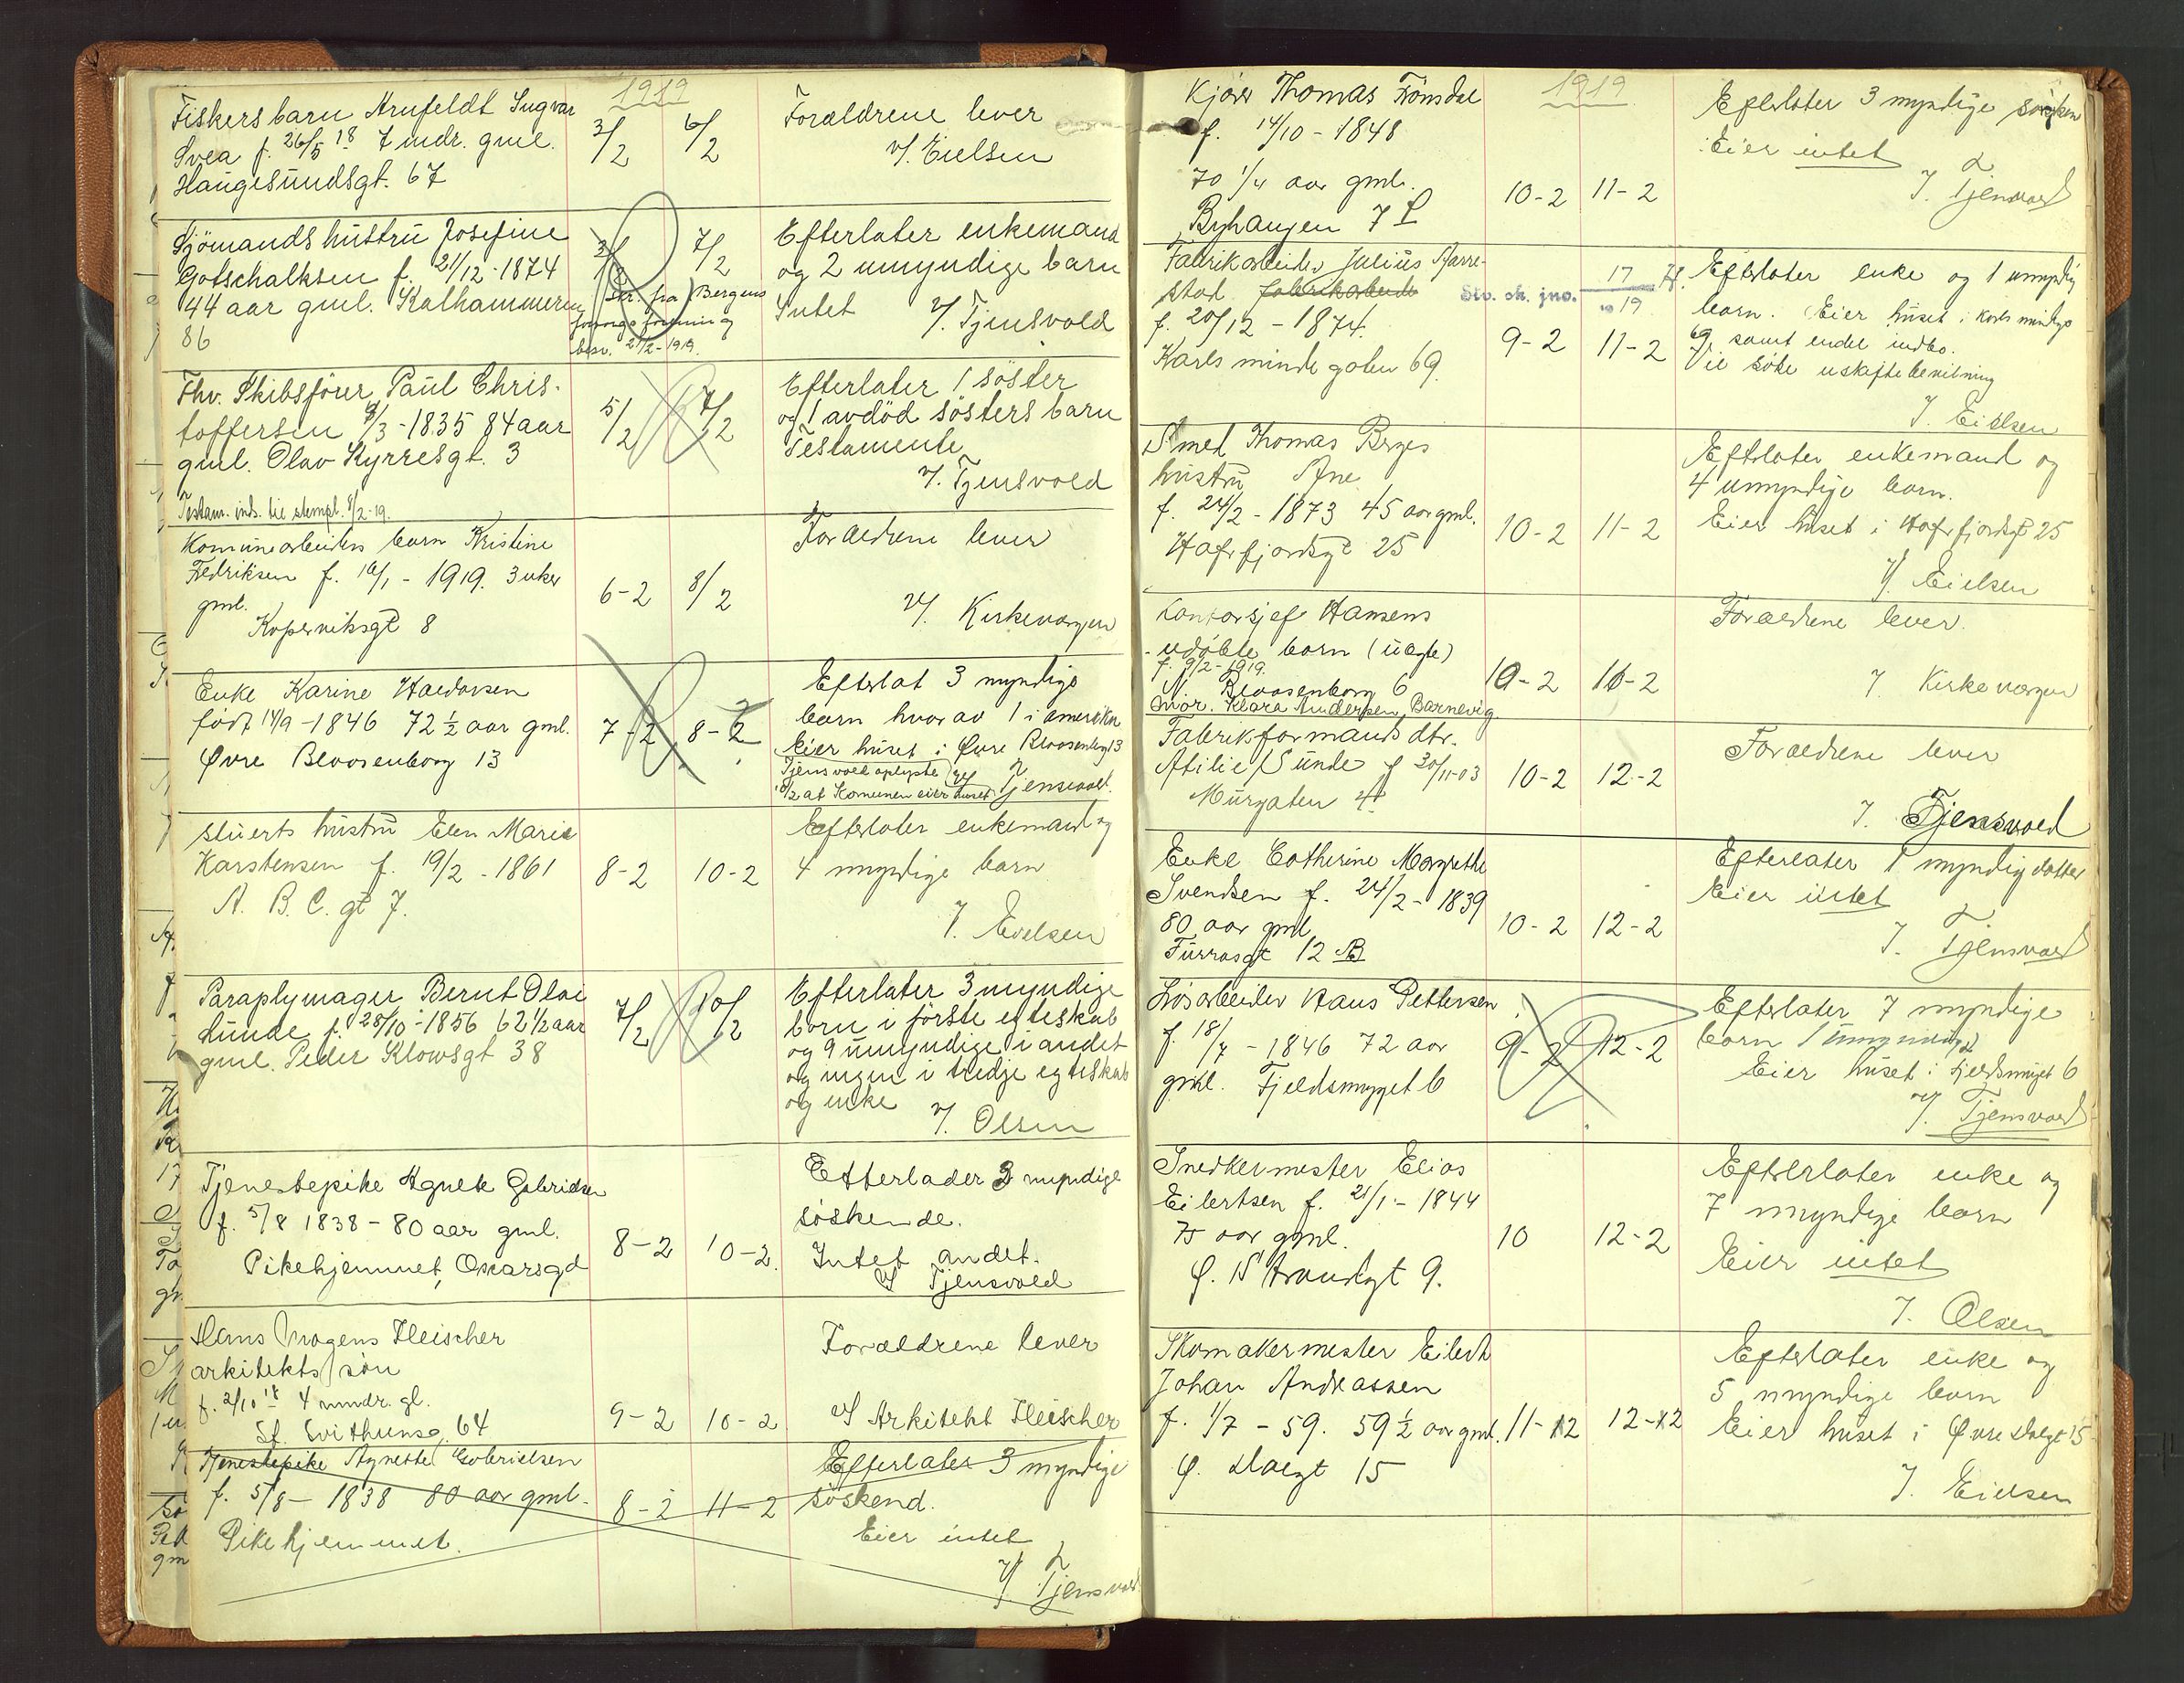 1919
Fiskersbarn Arnfeldt Ingvar
Svea f. 26/5 18 7 mdr. gml.
Haugesundsgt. 67
3/2 6/2
Forældrene lever
v/. Eielsen
Sjömands hustru Josefine
Gotschalksen f. 21/12-1874
44 aar gml. Kalhammeren
86
3/2 7/2
Skr. fra Bergens
forsorgsforening
besv. 21/2-1919.
Efterlater enkemand
og 2 umyndige barn
Intet v/. Tjensvold
Fhv. Skibsförer Paul Chris-
toffersen 8/3-1835 84 aar
gml. Olav Kyrresgt. 3
Testam. inds. til stempl. 8/2-19.
5/2 7/2
Efterlater 1 söster
og 1 avdöd sösters barn
Testamente
v/. Tjensvold
Komunearbeiders barn Kristine
Fredriksen f. 16/1 - 1919. 3 uker
gml.
Koperviksgt 8
6-2 8/2
Forældrene lever
v/. Kirkevergen
Enke Karine Haldorsen
født 14/9-1846 72 1/2 aar gml.
Øvre Blaasenborg 13
7-2 8-2
Efterlat 3 myndige
barn hvorav 1 i amerika
Eier huset i Øvre Blaasenbg 13
Tjensvold oplyste
10/2 at Komunen eier huset
v/ Tjensvold.
Stuerts hustru Elen Marie
Karstensen f. 19/2 - 1861
A. B. C. gt 7.
8-2 10-2
Efterlater enkemand og
4 myndige barn
v/. Eielsen
Paraplymager Bernt Olai
Lunde f. 28/10-1856 62 1/2 aar
gml. Peder Klowsgt 38
7/2 10/2
Efterlater 3 myndige
born i förste egteskab
og 9 umyndige i andet
og ingen i tredje egteskab
og enke
v/. Olsen
Tjenestepike Agnete Gabrielsen
f. 5/8 1838 - 80 aar gml.
Pikehjemmet, Oscarsgd
8-2 10-2.
Etterlader 3 myndige
söskende.
Intet andet.
v/ Tjensvold
Hans Mogens Fleischer
arkitekts sön
f. 2/10 18 4 mndr. gl.
St. Svithunsg. 64
9-2 10-2
Forældrene lever
v/ Arkitekt Fleischer
Tjenestepike Agnethe Gabrielsen
f. 5/8 - 1838 80 aar gml.
Pikehjemmet.
8-2 11-2
Efterlater 3 myndige
söskend.
Eier intet
v/ Tjensvold
1919
Kjörer Thomas Frömsdal
f. 14/10 - 1848
70 1/4 aar gml.
Byhaugen 7
10-2 11-2
Efterlater 3 myndige söskken
Eier intet
v/. Tjensvold
Fabrikarbeider Julius Harre-
stad fabrikarbeider
f. 20/12 - 1874.
Karlsmindegaten 69.
Stv. sk. jno. 17/1919
9-2 11-2
Efterlater enke og 1 umyndig
barn. Eier huset i Karlsmindegt
69, samt endel indbo.
Vil söke uskiftebevilning
v/. Eielsen
Smed Thomas Berges
hustru Ane
f. 24/2 - 1873 45 aar gml.
Hafrsfjordsgt 25
10-2 11-2
Efterlater enkemand og
4 umyndige barn.
Eier huset i Hafrsfjordsgt 25
v/. Eielsen
Kontorsjef Hansens
udöbte barn (uegte)
f. 9/2-1919.
Blaasenborg 6
Mor. Klara Andersen, Barnevig.
10-2 11-2
Forældrene lever.
v/. Kirkevergen
Fabrikformands dtr.
Atilie Sunde f 30/11-03
Murgaten 4
10-2 12-2
Forældrene lever
v/. Tjensvold
Enke Cathrine Margrethe
Svendsen f. 24/2 - 1839
80 aar gml
Furrasgt 12 B
10-2 12-2
Efterlater 1 myndig datter
Eier intet
v/. Tjensvold
Lösarbeider Hans Pettersen
f. 18/7 - 1846 72 aar
gml. Fjeldsmuget 6
9-2 12-2
Efterlater 7 myndige
barn 1 umyndig
Eier huset i Fjeldsmuget 6
v/. Tjensvold
Snedkermester Elias
Eilertsen f. 21/1 - 1844
75 aar gml.
Ø. Strandgt 9.
10 12-2
Efterlater enke og
7 myndige barn
Eier intet
v/. Olsen
Skomakermester Eilert
Johan Andreassen
f. 1/7 - 59. 59 1/2 aar gml.
Ø. Holegt 15
11-2 12-2
Efterlater enke og
5 myndige barn
Eier huset i Øvre Holegt 15
v/. Eielsen